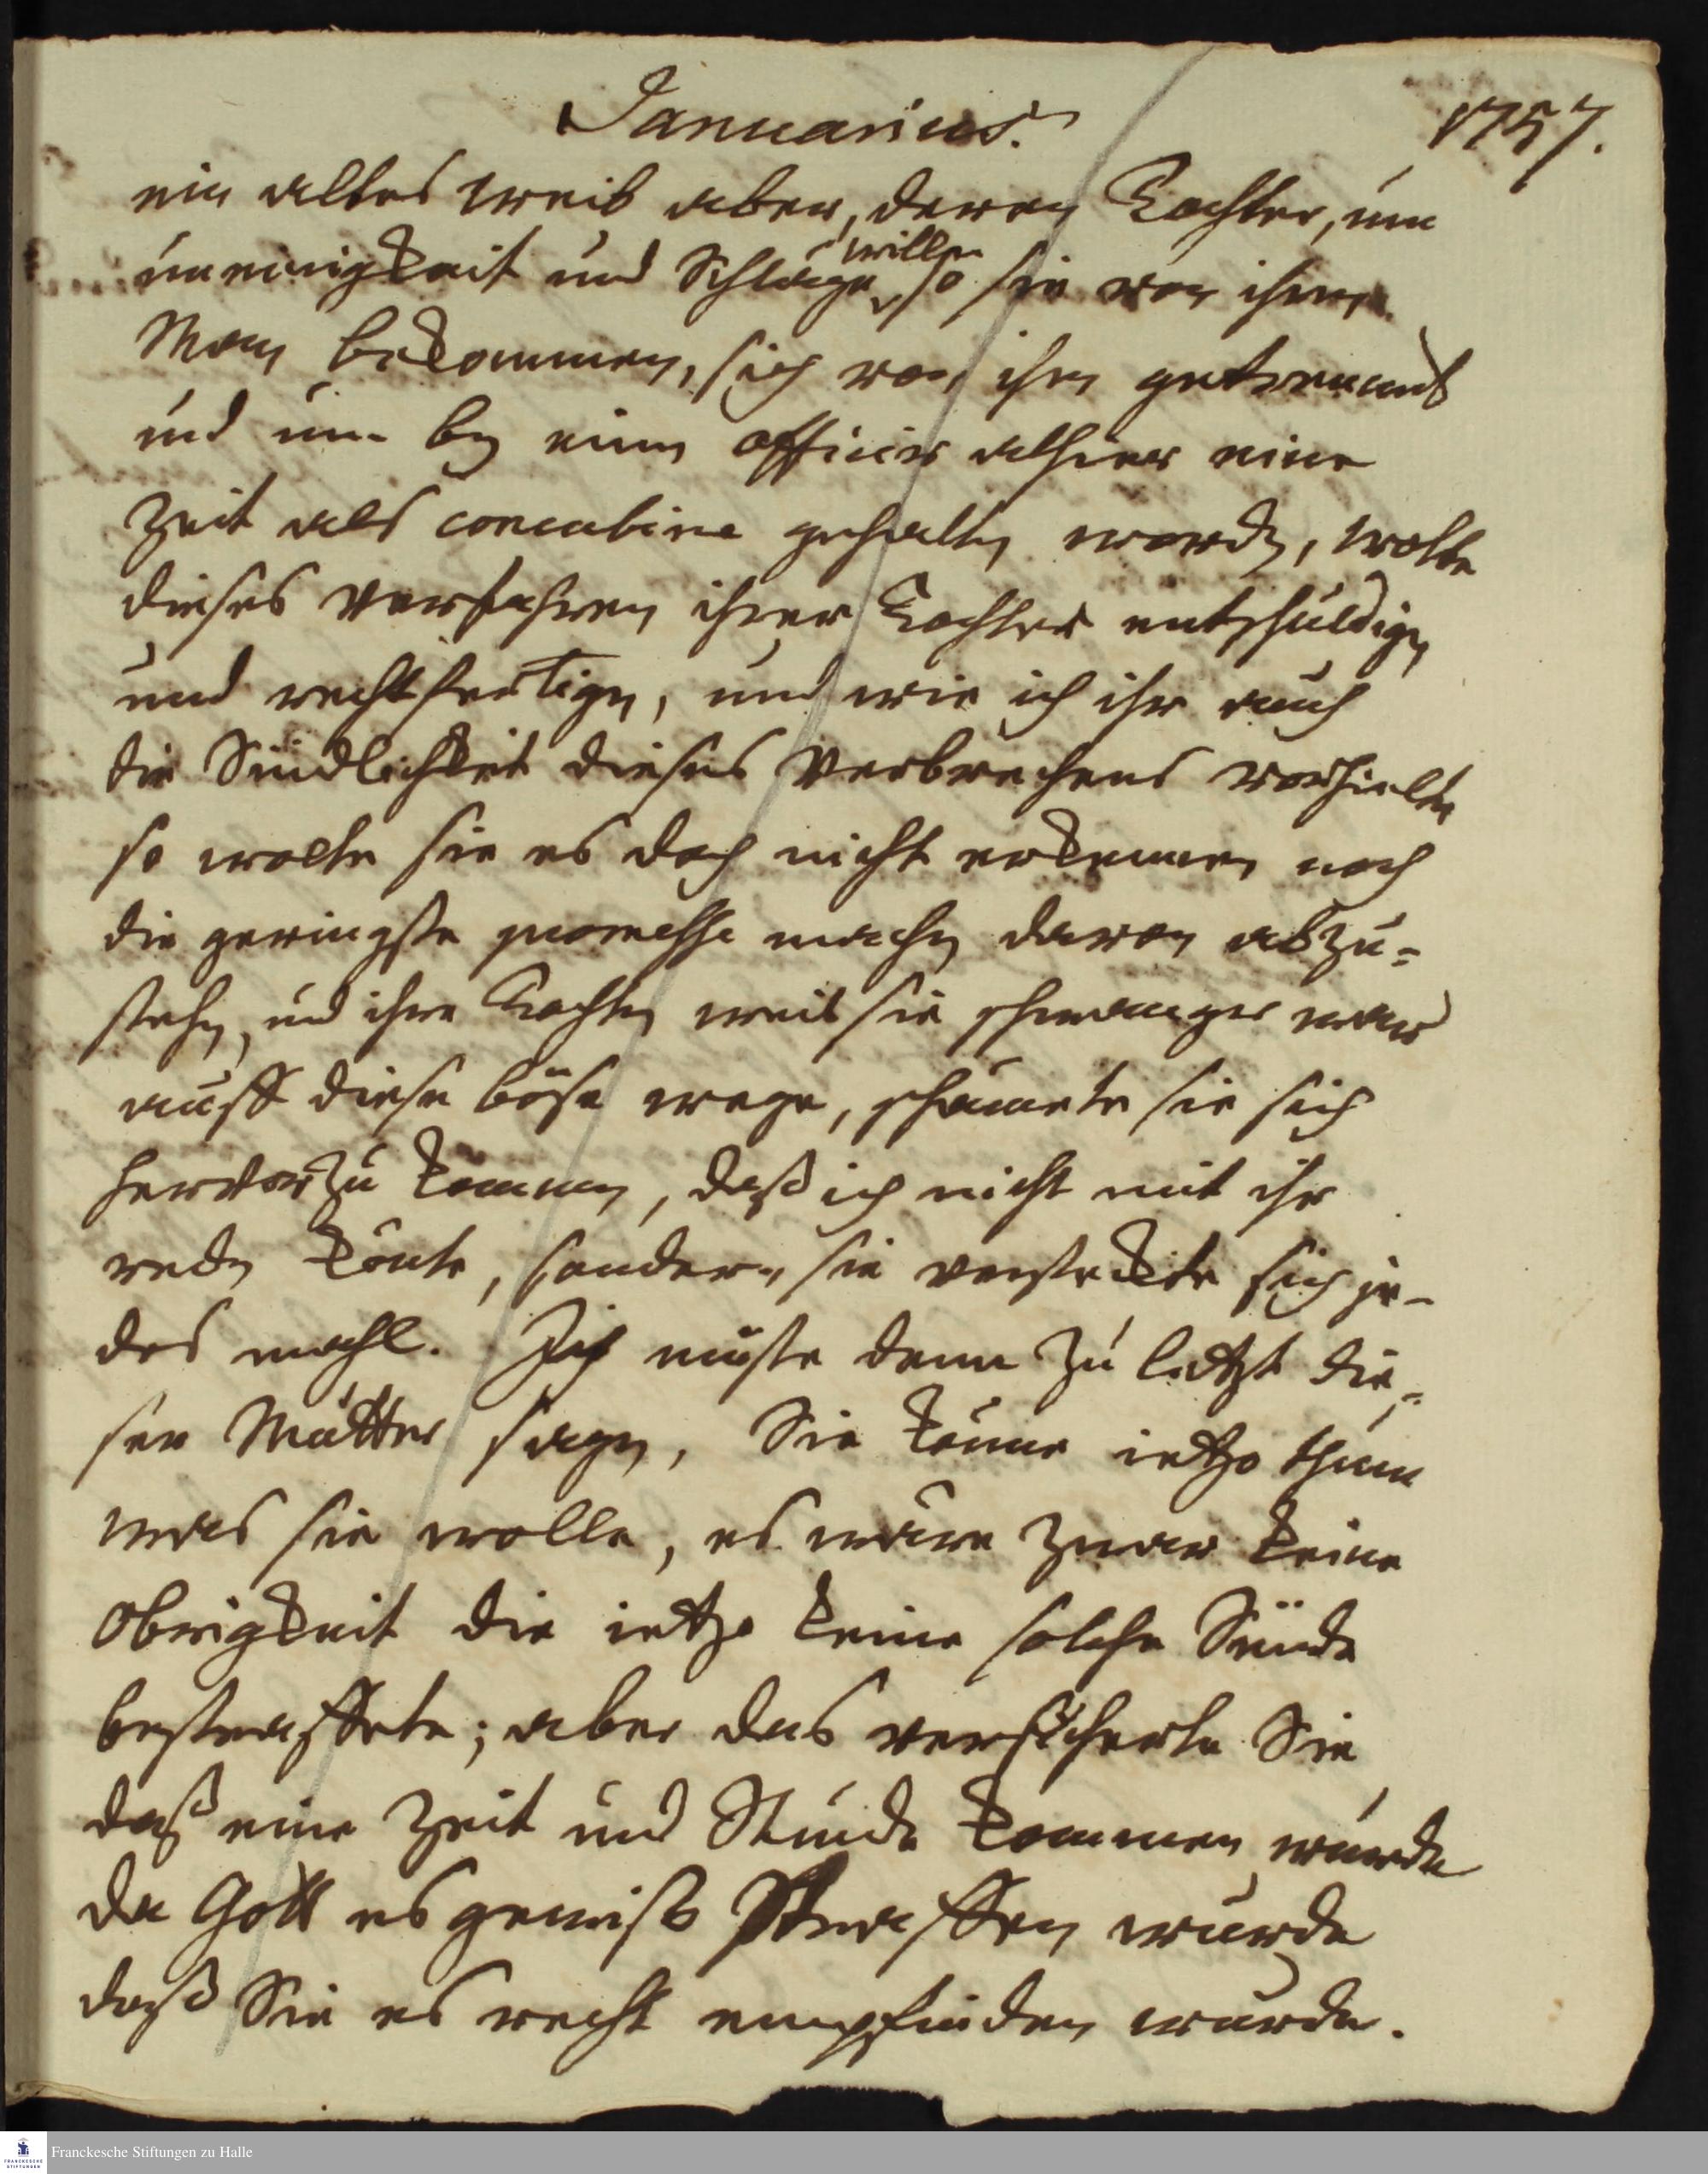 Januarius.
1757.
ein altes weib aber, deren Tochter, um
uneinigkeit und Schläge willen so sie von ihrem
Man bekommen, sich von ihm getrennet
und nun bey einem officier alhier eine
Zeit als concubine gehalten worden, wolte
dieses verfahren ihrer Tochter entschuldigen
und rechtfertigen, und wie ich ihr auch
die Sündlichkeit dieses verbrechens vorhielte
so wolte sie es doch nicht erkennen noch
die geringste promesse machen davon abzu=
stehen, und ihre Tochter weil sie schwanger war
auff diese böse wege, schämete sie sich
hervorzu kommen, daß ich nicht mit ihr
reden konte, sondern sie versteckte sich je-
des mahl. Ich muste denn zu letzt die=
ser Mutter sagen, Sie könne ietzo thun
was sie wolle, es wäre zwar keine
Obrigkeit die ietzo keine solche Sünde
bestraffete; aber das versicherte Sie
daß eine Zeit und Stunde kommen würde
da Gott es gewiß straffen würde
daß Sie es recht empfinden würde.
Franckesche Stiftungen zu Halle
FRANCKESCHE
STIFTUNGEN